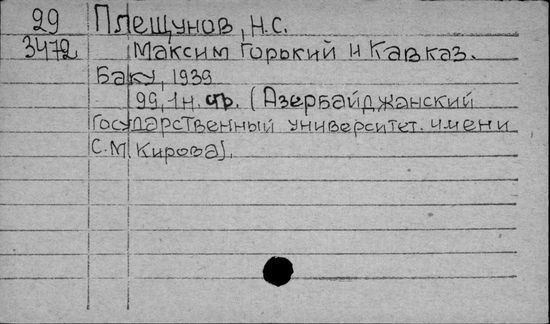 29 Плещунов, Н.С.
3472 Максим Горький и Кавказ.
Баку, 1939
99, 1 н. стр. (Азербайджанский
Государственный университет. имени
С.М. Кирова).